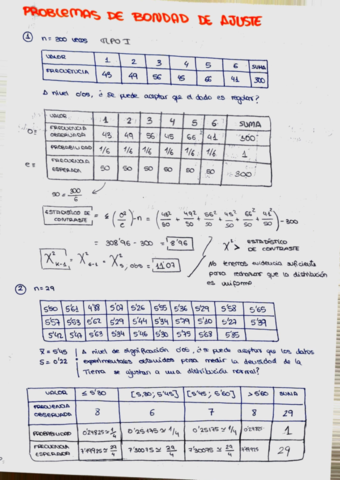 PROBLEMAS DE BONDAD DE AJUSTE
① n = 300 veces TIPO I
VALOR 1 2 3 4 5 6 SUMA
FRECUENCIA 43 49 56 45 66 41 300
A nivel 0'05, ¿se puede aceptar que el dado es regular?
VALOR 1 2 3 4 5 6 SUMA
O: FRECUENCIA OBSERVADA 43 49 56 45 66 41 300
PROBABILIDAD 1/6 1/6 1/6 1/6 1/6 1/6 1
e: FRECUENCIA ESPERADA 50 50 50 50 50 50 300
50 = 300/6
ESTADÍSTICO DE CONTRASTE = Σ (O²/e) - n = (43²/50 + 49²/50 + 56²/50 + 45²/50 + 66²/50 + 41²/50) - 300
= 308'96 - 300 = 8'96
χ² > ESTADÍSTICO DE CONTRASTE
χ² k-1 = χ² 6-1 = χ² 5, 0'05 = 11'07
No tenemos evidencia suficiente
para rechazar que la distribución
es uniforme
② n = 29
5'50 5'61 4'88 5'07 5'26 5'55 5'36 5'29 5'58 5'65
5'57 5'53 5'62 5'29 5'44 5'34 5'79 5'10 5'27 5'39
5'42 5'47 5'63 5'34 5'46 5'30 5'75 5'68 5'85
x̄ = 5'45
S = 0'22
A nivel de significación 0'05, ¿se puede aceptar que los datos
experimentales obtenidos para medir la densidad de la
Tierra se ajustan a una distribución normal?
≤ 5'30 [5,30; 5'45] [5'45; 5'60] > 5'60 SUMA
FRECUENCIA OBSERVADA 8 6 7 8 29
PROBABILIDAD 0'24825 ≈ 1/4 0'25175 ≈ 1/4 0'25175 ≈ 1/4 1
FRECUENCIA ESPERADA ≈ 29/4 7'30075 ≈ 29/4 7'30075 ≈ 29/4 29